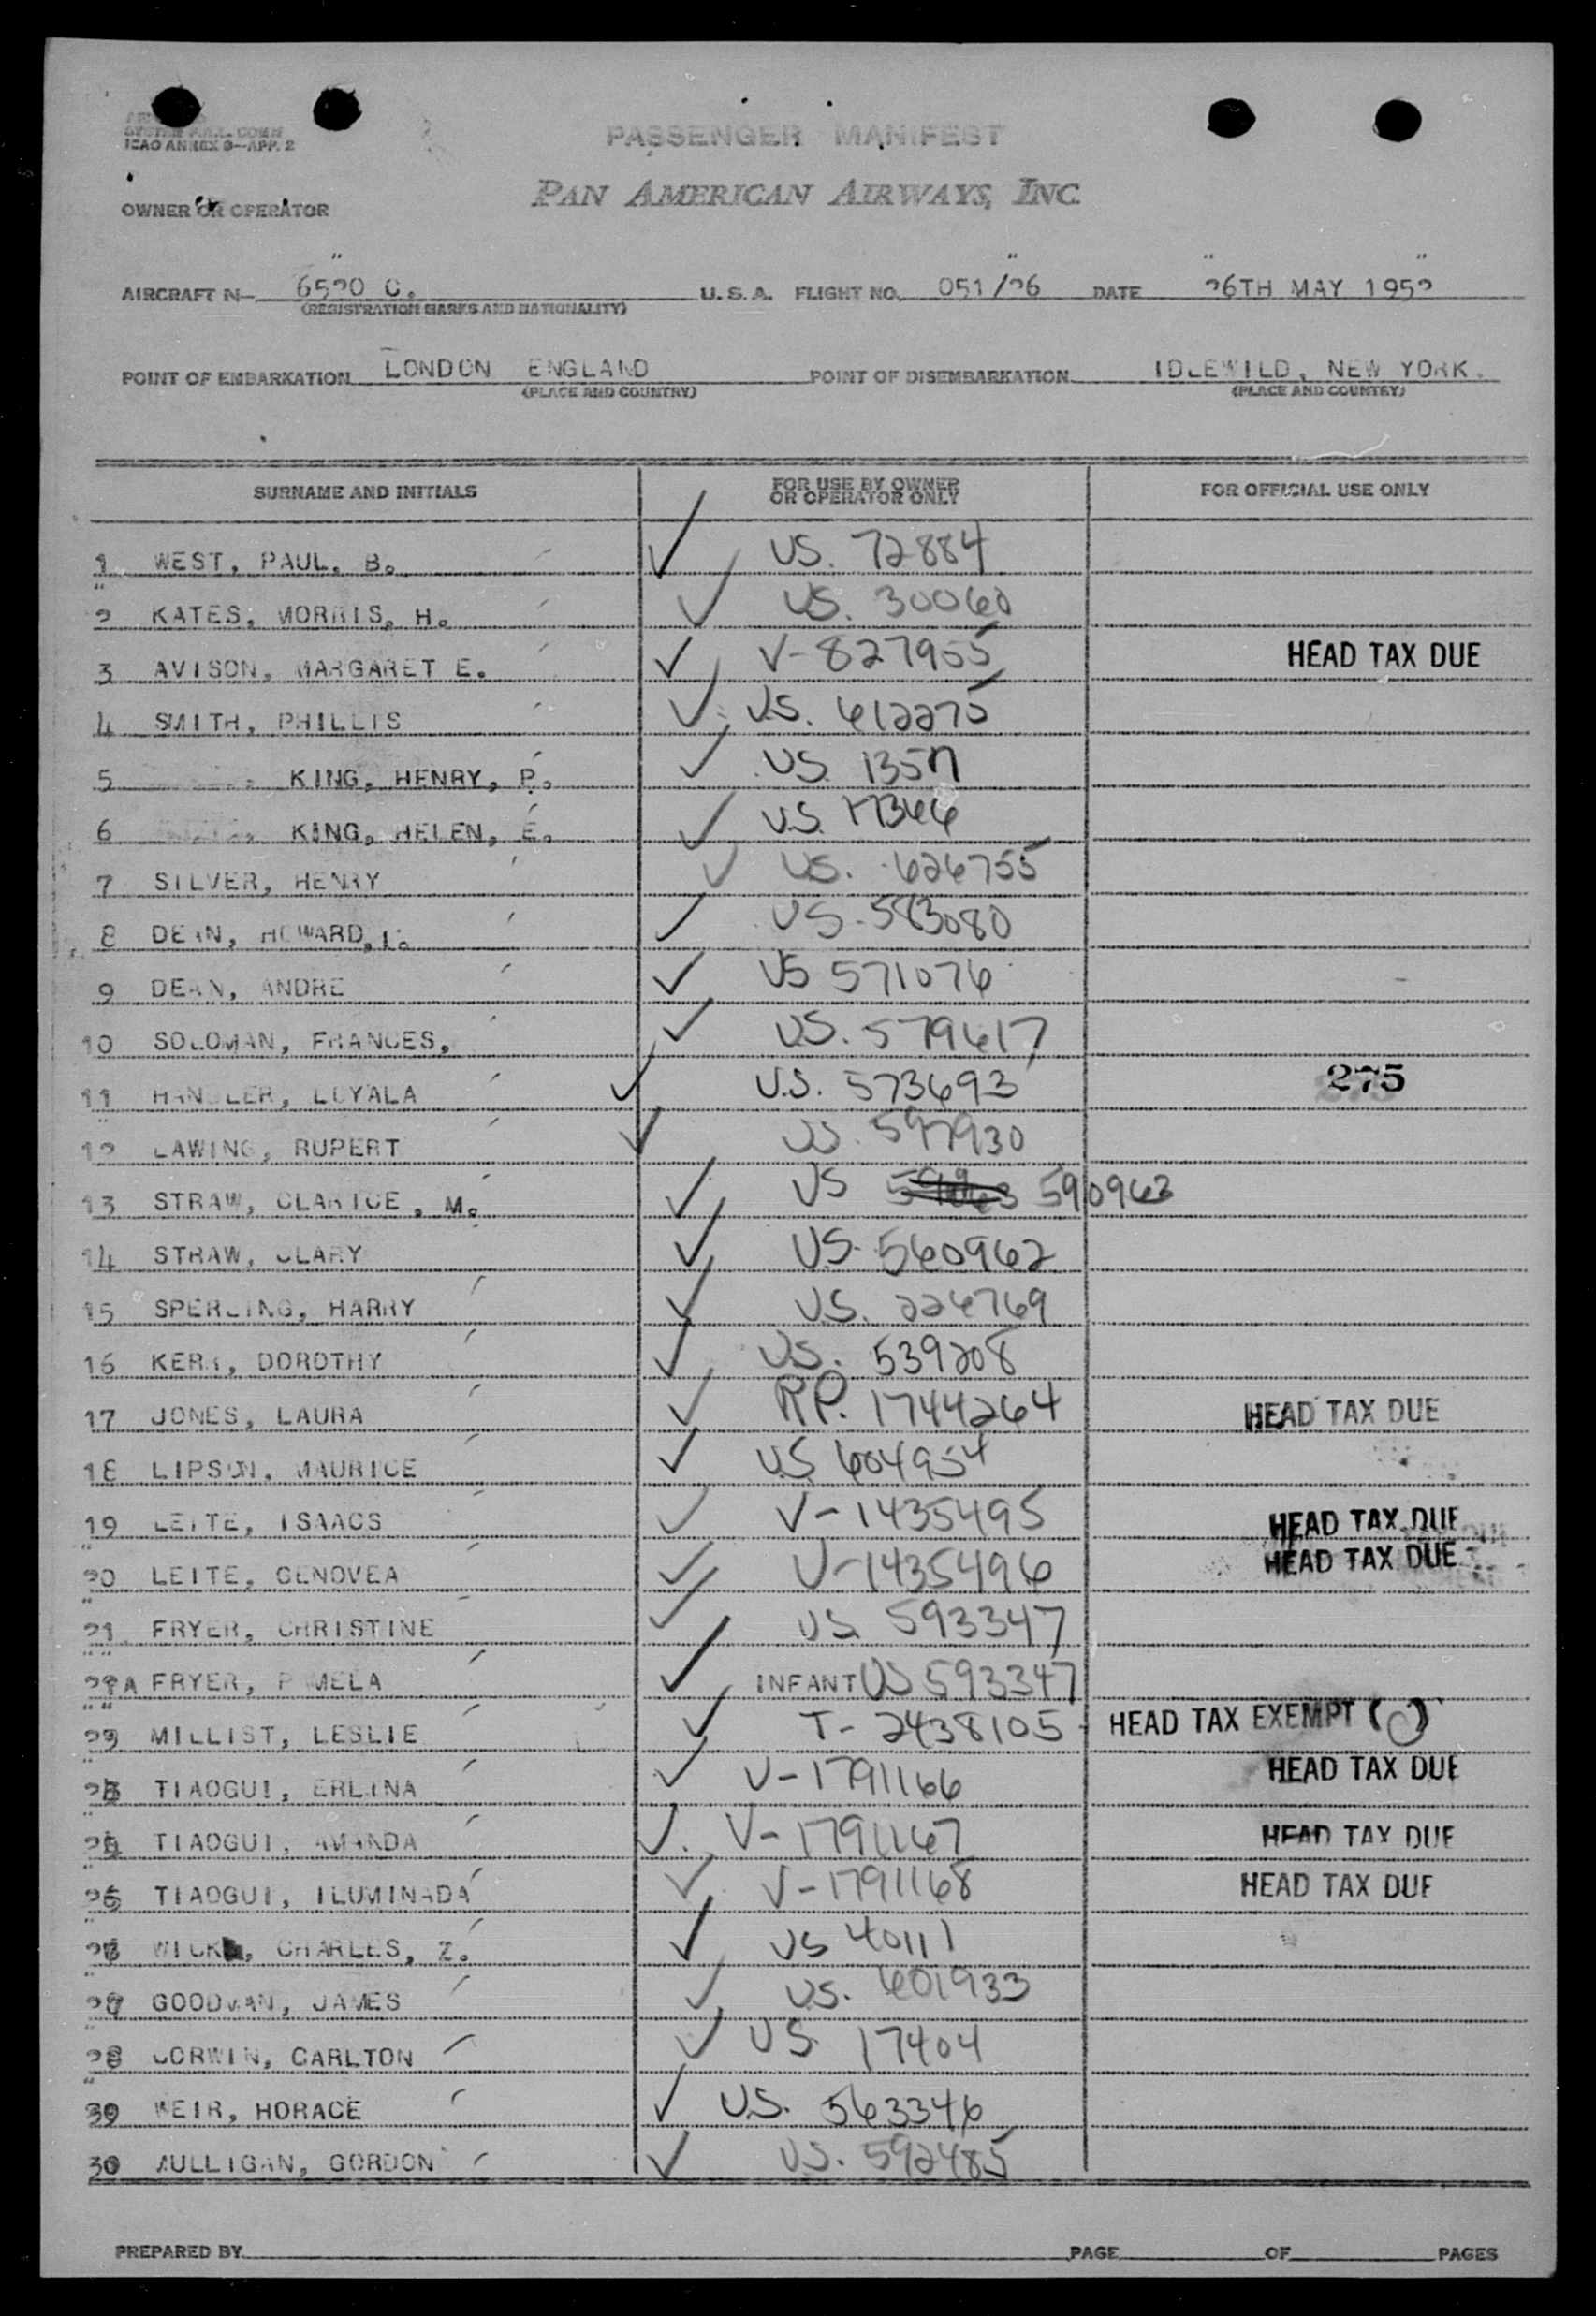 ICAO ANNEX 9—APP. 2
PASSENGER MANIFEST
OWNER OR OPERATOR PAN AMERICAN AIRWAYS, INC.
AIRCRAFT N— 6520 C. U.S.A. FLIGHT NO. 051/26 DATE 26TH MAY 1952
(REGISTRATION MARKS AND NATIONALITY)
POINT OF EMBARKATION LONDON ENGLAND POINT OF DISEMBARKATION IDLEWILD, NEW YORK.
(PLACE AND COUNTRY) (PLACE AND COUNTRY)
SURNAME AND INITIALS FOR USE BY OWNER OR OPERATOR ONLY FOR OFFICIAL USE ONLY
1 WEST, PAUL, B. ✓ US. 72884
2 KATES, MORRIS, H. ✓ US. 30060
3 AVISON, MARGARET E. ✓ V-827955 HEAD TAX DUE
4 SMITH, PHILLIS ✓ U.S. 612275
5 KING, HENRY, P. ✓ US.
6 KING, HELEN, E. ✓ U.S. 17366
7 SILVER, HENRY ✓ US. 626755
8 DEAN, HOWARD, ✓ US. 583080
9 DEAN, ANDRE ✓ US 571076
10 SOLOMAN, FRANCES, ✓ US. 579617
11 LOYALA ✓ U.S. 573693 275
12 LAWING, RUPERT ✓ US. 597930
13 STRAW, CLARICE, M. ✓ US 590963
14 STRAW, CLARY ✓ US. 560962
15 SPERLING, HARRY ✓ U.S. 226769
16 KERR, DOROTHY ✓ US. 539208
17 JONES, LAURA ✓ RP. 1744264 HEAD TAX DUE
18 LIPSON, MAURICE ✓ US 604954
19 LEITE, ISAACS ✓ V-1435495 HEAD TAX DUE
20 LEITE, GENOVEA ✓ V-1435496 HEAD TAX DUE
21 FRYER, CHRISTINE ✓ US 593347
22A FRYER, PAMELA ✓ INFANT US 593347
MILLIST, LESLIE ✓ T-2438105 HEAD TAX EXEMPT ( )
TIAOGUI, ERLINA ✓ V-1791166 HEAD TAX DUE
TIAOGUI, AMANDA ✓ V-1791167 HEAD TAX DUE
TIAOGUI, ILUMINADA ✓ V-1791168 HEAD TAX DUE
CHARLES, Z. ✓ US 40111
GOODMAN, JAMES ✓ US. 601933
CORWIN, CARLTON ✓ US. 17404
WEIR, HORACE ✓ U.S. 563346
30 MULLIGAN, GORDON ✓ US. 592485
PREPARED BY PAGE OF PAGES